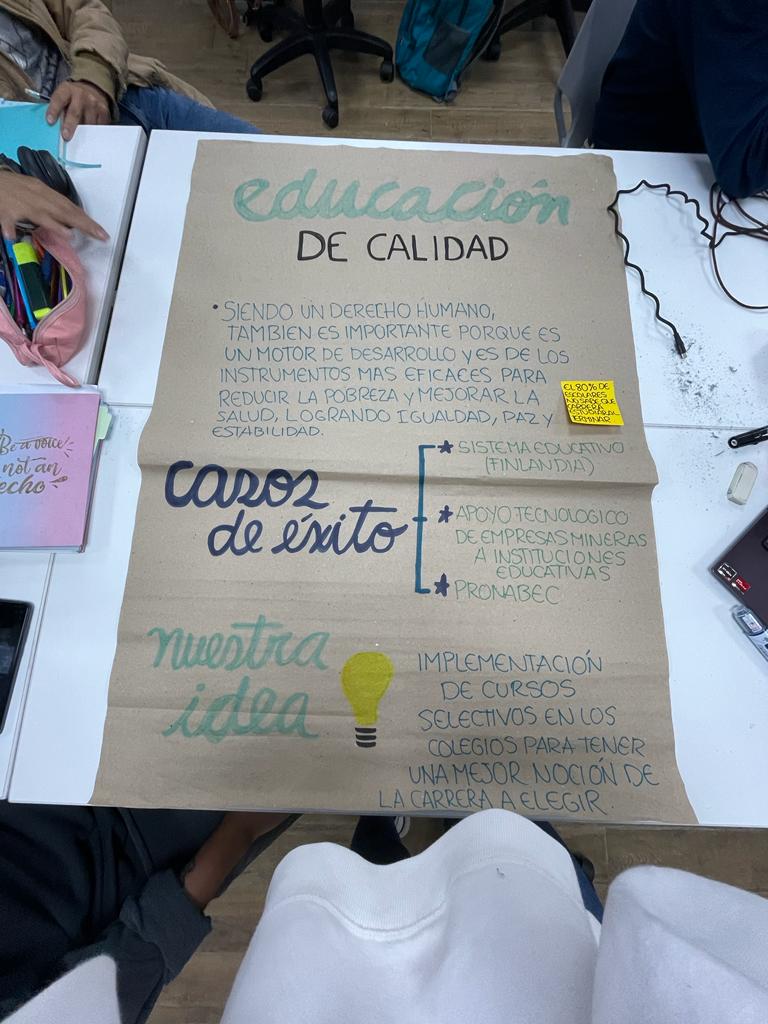 educación
DE CALIDAD
• SIENDO UN DERECHO HUMANO,
TAMBIEN ES IMPORTANTE PORQUE ES
UN MOTOR DE DESARROLLO Y ES DE LOS
INSTRUMENTOS MAS EFICACES PARA
REDUCIR LA POBREZA Y MEJORAR LA
SALUD, LOGRANDO IGUALDAD, PAZ Y
ESTABILIDAD.
EL 80% DE
ESCOLARES
NO SABE QUE
CARRERA
ESTUDIAR AL
TERMINAR
casos
de éxito
★ SISTEMA EDUCATIVO
(FINLANDIA)
★ APOYO TECNOLOGICO
DE EMPRESAS MINERAS
A INSTITUCIONES
EDUCATIVAS
★ PRONABEC
nuestra
idea
IMPLEMENTACIÓN
DE CURSOS
SELECTIVOS EN LOS
COLEGIOS PARA TENER
UNA MEJOR NOCIÓN DE
LA CARRERA A ELEGIR.
Be a voice
not an
echo